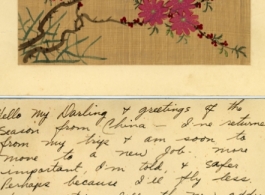 Hello my Darling & greetings of the
season from China - I've returned
from my trips & am soon to
move to a new job. More
important, I'm told, & safer
Perhaps because I'll fly less.